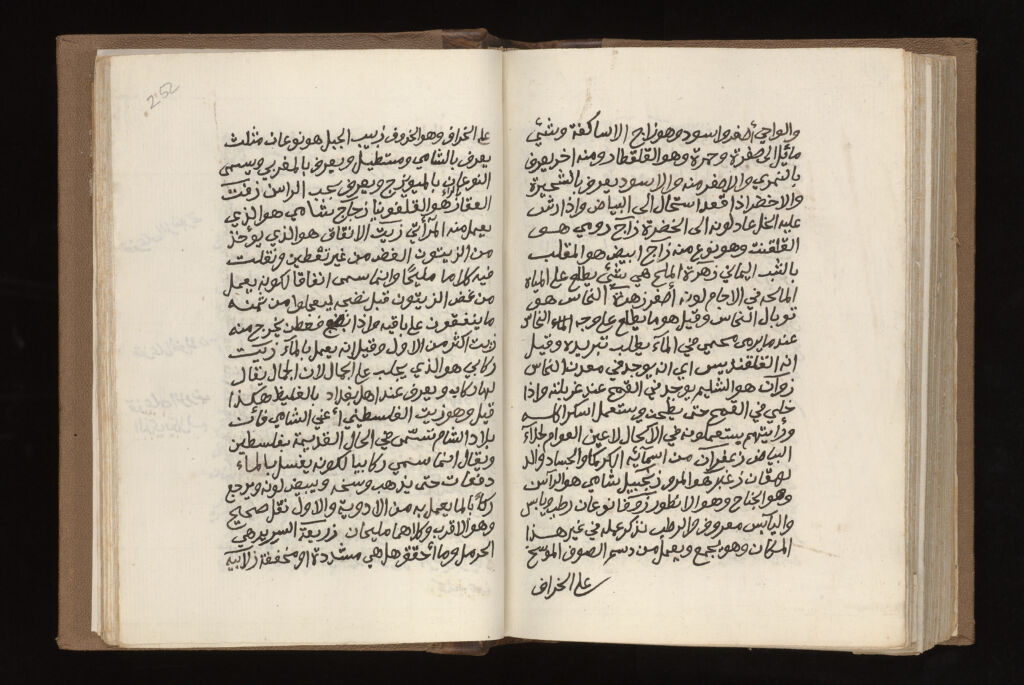 والواحي أصفر واسود وهو زاج الاساكفة وشئي
مائل الى صفرة وحمرة وهو القلقطار ومنه اخر يعرف
والاصفر منه والاسود يعرف بالشحيرة
والاخضر اذا قعد استحال الى البياض واذا رش
عليه الخل عاد لونه الى الخضرة زاج رومي هو
القلقنت وهو نوع منه زاج ابيض هو الملقب
بالشب اليماني زهرة الملح هي شئي يطلع على المياه
المالحه في الاجام لونه أصفر زهرة النحاس هو
توبال النحاس وقيل هو ما يطلع على وجه النحاس
عند ما يرمى محمي في الماء يطلب تبريده وقيل
انه القلقنديس اي انه يوجد في معدن النحاس
زوان هو الشيلم يوجد في القمح عند غربلته واذا
خلي في القمح حتى يطحن ويستعمل اسكر اكله
ورأيتهم يستعملونه في الاكحال لاعين العوام لجلاء
البياض زعفران من اسمائه الكركم والجساد والر
زنجبيل شامي هو الراسن
وهو الجناح زوفا نوعان رطب ويابس
واليابس معروف والرطب نذكر عمله في غير هذا
المكان وهو يجمع ويعمل من دسم الصوف الموسخ
على الخراف
252
على الخراف وهو الخروف زبيب الجبل هو نوعان مثلث
يعرف بالشامي ومستطيل ويعرف بالمغربي ويسمى
النوعان بالميويزج ويعرف بحب الراس زفت
هو القلفونيا زجاج شامي هو الذي
يعمل منه المرائي زيت الانفاق هو الذي يؤخذ
من الزيتون الغض من غير تغطين ونقلت
فيه كلاما مليحا وانما سمي انفاقا لكونه يعمل
من غض الزيتون قبل نضجه ليعملوا من ثمنه
ما ينفقون على باقيه واذا نضج فعطن يخرج منه
زيت اكثر من الاول وقيل انه يعمل بالماء زيت
ركابي هو الذي يجلب على الجمال لان الجمال يقال
لها ركاب ويعرف عند اهل بغداد بالغليظ هكذا
قيل وهو زيت الفلسطيني أعني الشامي فانت
بلاد الشام تسمى في الحال القديمة بفلسطين
ويقال انما سمي ركابيا لكونه يغسل بالماء
دفعات حتى يذهب وسخه ويبيض لونه ويرجع
ركابا لما يعمل به من الادوية والاول نقل صحيح
وهو الاقرب وكلاهما مليحان زريعة السريد هي
الحرمل وما أحقق هل هي مشددة او مخففة زلابيه